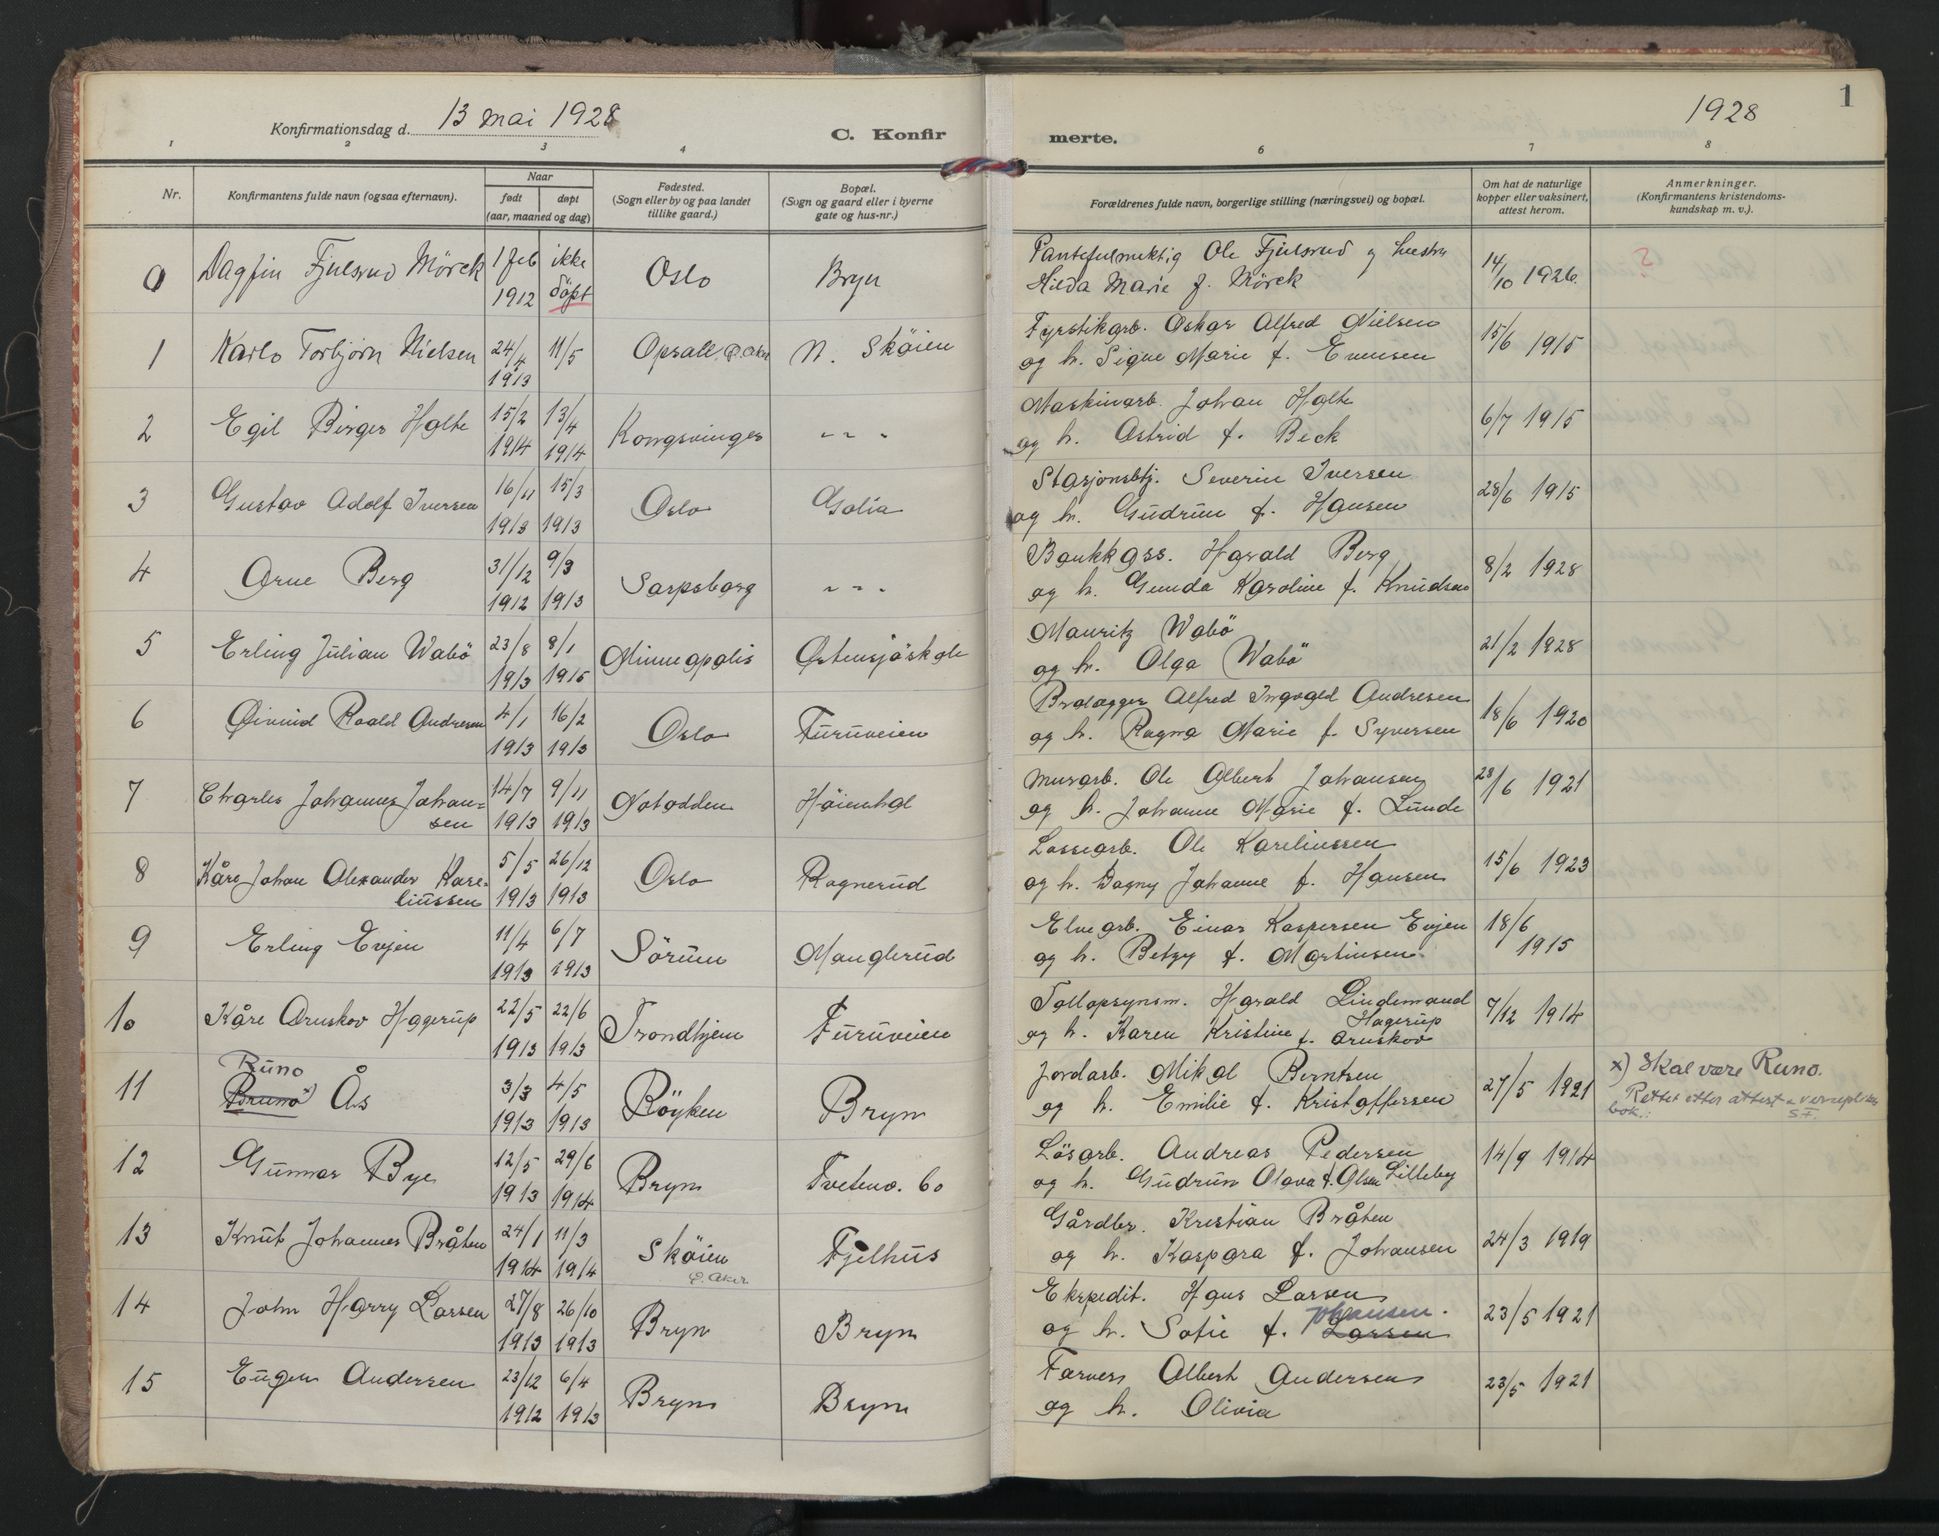 1
13 mai 1928
1928
Konfirmationsdag d.
C. Konfir
merte.
1 2 3 4 6 7 8
Nr.
Konfirmantens fulde navn (ogsaa efternavn).
Naar
født døpt
(aar, maaned og dag)
Fødested.
(Sogn eller by og paa landet
tillike gaard.)
Bopæl.
(Sogn og gaard eller i byerne
gate og hus-nr.)
Forældrenes fulde navn, borgerlige stilling (næringsvei) og bopæl.
Om hat de naturlige
kopper eller vaksinert,
attest herom.
Anmerkninger.
(Konfirmantens kristendoms-
kundskap m. v.).
0 Dagfin Fjulsrud Mörck 1 feb ikke Oslo Bryn Ole Fjulsrud og hustru 14/10 1926 ?
1912 döpt Hilda Marie f. Mörck
1 Karlo Torbjörn Nielsen 24/4 11/5 Opsall, Ø. Aker N. Skøien Fyrstikarb. Oskar Alfred Nielsen 15/6 1915
1913 og h. Signe Marie f. Evensen
2 Egil Birger Holte 15/2 13/4 Kongsvinger - - - Maskinarb. Johan Holte 6/7 1915
1914 1914 og h. Astrid f. Beck
3 Gustav Adolf Iversen 16/11 15/3 Oslo Golia Stasjonsbtj. Severin Iversen 28/6 1915
1913 og h. Gudrun f. Hansen
4 Arne Berg 31/12 9/3 Sarpsborg - - - Bankkass. Harald Berg 8/2 1928
1912 1913 og h. Gunda Karoline f. Knudsen
5 Erling Julian Wabö 23/8 Minneapolis Østensjöskole Mauritz Wabö 21/2 1928
1913 1915 og h. Olga Wabö
6 Øivind Roald Andresen 4/1 16/2 Oslo Furuveien Brolegger Alfred Ingvald Andresen 18/6 1920
1913 1913 og h. Ragna Marie f. Syversen
7 Charles Johannes Johan= 14/7 9/11 Notodden Höienhal Murarb. Ole Albert Johansen 28/6 1921
sen 1913 1913 og h. Johanne Marie f. Lunde
8 Kåre Johan Alexander Kare= 5/5 26/12 Oslo Rognerud Lossearb. Ole Kareliussen 15/6 1923
liussen 1913 1913 og h. Dagny Johanne f. Hansen
9 Erling Evjen 11/4 6/7 Sörum Manglerud Elvearb. Einar Kaspersen Evjen 18/6
1913 1913 og h. Betzy f. Martinsen 1915
10 Kåre Aruskov Hagerup 22/5 22/6 Trondhjem Furuveien Tollopsynsm. Harald Lindemand 7/12 1914
Hagerup
1913 1913 og h. Karen Kristine f. Aruskov
Runo
11 Bruno x) Ås 3/3 4/5 Röyken Bryn Jordarb. Mikal Berntsen 27/5 1921 x) Skal være Runo.
1913 1913 og h. Emilie f. Kristoffersen Rettet etter attest
bok.: SF.
12 Gunnar Bye 12/5 29/6 Bryn Tvetenv. 60 Lösarb. Andreas Pedersen 14/9 1914
1913 1914 og h. Gudrun Olava f. Olsen Lilleby
13 Knut Johannes Bråten 24/1 11/3 Skøien Fjelhus Gårdbr. Kristian Bråten 24/3 1919
1914 1914 Ø. Aker og h. Kaspara f. Johansen
14 John Harry Larsen 27/8 26/10 Bryn Bryn Ekspedit. Hans Larsen 23/5 1921
1913 1913 og h. Sofie f. Larsen Johansen.
15 Eugen Andersen 23/12 6/4 Bryn Bryn Farver Albert Andersen 23/5 1921
1912 1913 og h. Olivia